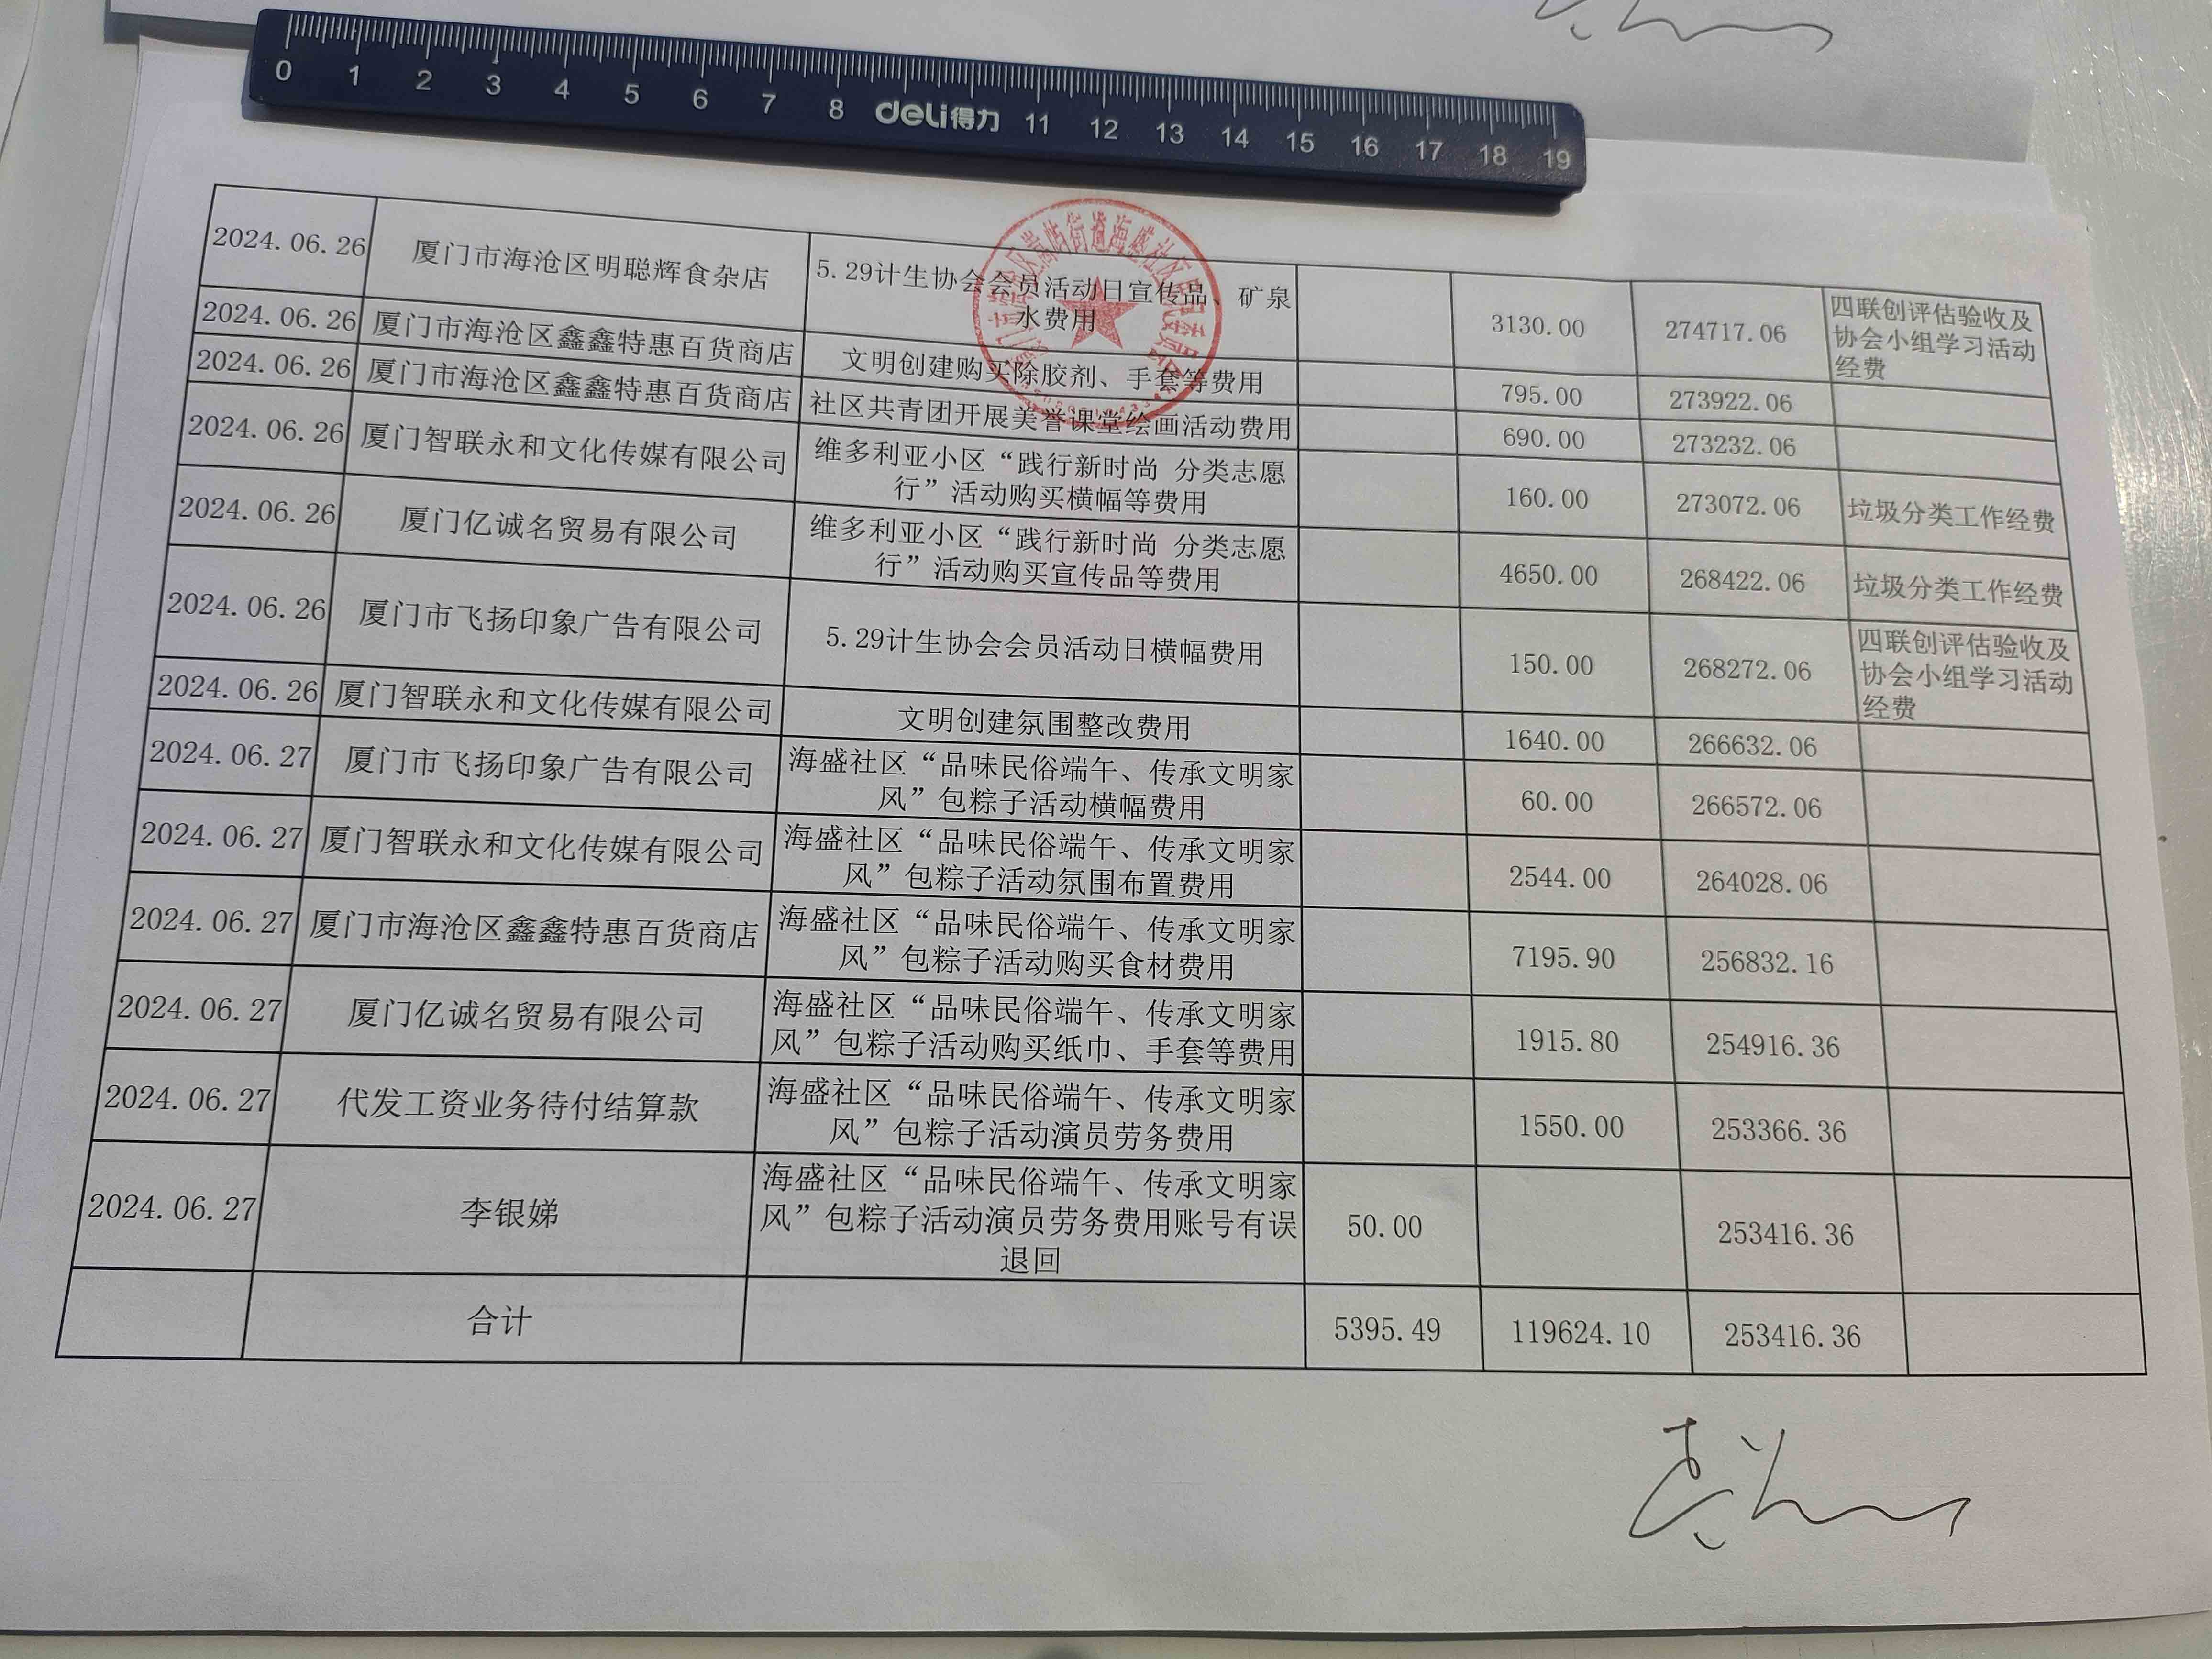 0 1 2 3 4 5 6 7 8 deli得力 11 12 13 14 15 16 17 18 19
2024.06.26 厦门市海沧区明聪辉食杂店 5.29计生协会会员活动日宣传品、矿泉 3130.00 274717.06 四联创评估验收及
水费用 协会小组学习活动
经费
2024.06.26 厦门市海沧区鑫鑫特惠百货商店 文明创建购买除胶剂、手套等费用 795.00 273922.06
2024.06.26 厦门市海沧区鑫鑫特惠百货商店 社区共青团开展美誉课堂绘画活动费用 690.00 273232.06
2024.06.26 厦门智联永和文化传媒有限公司 维多利亚小区“践行新时尚 分类志愿 160.00 273072.06 垃圾分类工作经费
行”活动购买横幅等费用
2024.06.26 厦门亿诚名贸易有限公司 维多利亚小区“践行新时尚 分类志愿 4650.00 268422.06 垃圾分类工作经费
行”活动购买宣传品等费用
2024.06.26 厦门市飞扬印象广告有限公司 5.29计生协会会员活动日横幅费用 150.00 268272.06 四联创评估验收及
协会小组学习活动
经费
2024.06.26 厦门智联永和文化传媒有限公司 文明创建氛围整改费用 1640.00 266632.06
2024.06.27 厦门市飞扬印象广告有限公司 海盛社区“品味民俗端午、传承文明家 60.00 266572.06
风”包粽子活动横幅费用
2024.06.27 厦门智联永和文化传媒有限公司 海盛社区“品味民俗端午、传承文明家 2544.00 264028.06
风”包粽子活动氛围布置费用
2024.06.27 厦门市海沧区鑫鑫特惠百货商店 海盛社区“品味民俗端午、传承文明家 7195.90 256832.16
风”包粽子活动购买食材费用
2024.06.27 厦门亿诚名贸易有限公司 海盛社区“品味民俗端午、传承文明家 1915.80 254916.36
风”包粽子活动购买纸巾、手套等费用
2024.06.27 代发工资业务待付结算款 海盛社区“品味民俗端午、传承文明家 1550.00 253366.36
风”包粽子活动演员劳务费用
2024.06.27 李银娣 海盛社区“品味民俗端午、传承文明家 50.00 253416.36
风”包粽子活动演员劳务费用账号有误
退回
合计 5395.49 119624.10 253416.36